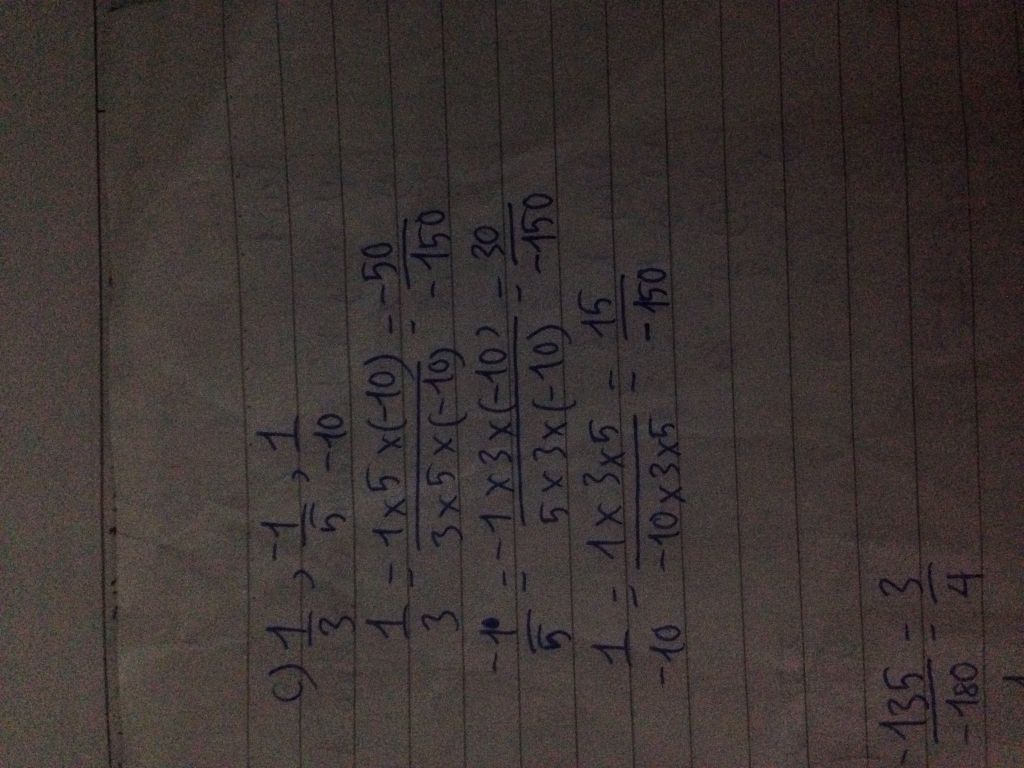 c) 1/3, -1/5, 1/-10
1/3 = 1x5x(-10)/3x5x(-10) = -50/-150
-1/5 = -1x3x(-10)/5x3x(-10) = 30/-150
1/-10 = 1x3x5/-10x3x5 = 15/-150
-135/-180 = 3/4